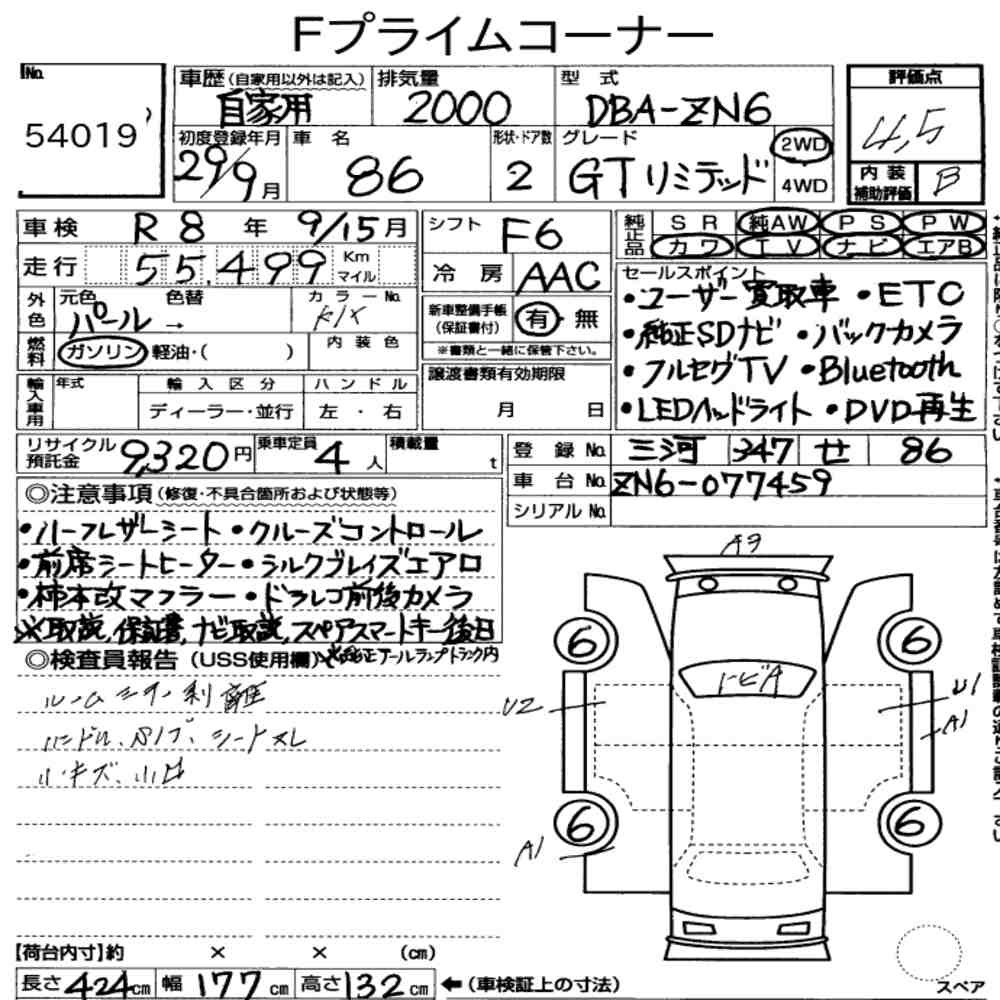 Fプライムコーナー
No. 54019
車歴(自家用以外は記入) 自家用
排気量 2000
型式 DBA-ZN6
評価点 4,5
内装補助評価 B
初度登録年月 29/9月
車名 86
形状・ドア数 2
グレード GTリミテッド
2WD
4WD
車検 R8年 9/15月
走行 55,499 Km マイル
シフト F6
冷房 AAC
純正品 SR 純AW PS PW
カワ TV ナビ エアB
外色 元色 パール → 色替
カラーNo. K1X
内装色
燃料 ガソリン 軽油・( )
新車整備手帳(保証書付) 有・無
※書類と一緒に保管下さい。
セールスポイント
・ユーザー買取車 ・ETC
・純正SDナビ ・バックカメラ
・フルセグTV ・Bluetooth
・LEDヘッドライト ・DVD再生
輸入車用 年式 輸入区分 ハンドル
ディーラー・並行 左・右
譲渡書類有効期限
月 日
リサイクル預託金 9,320円
乗車定員 4人
積載量 t
登録No. 三河 347 せ 86
車台No. ZN6-077459
シリアルNo.
◎注意事項(修復・不具合箇所および状態等)
・ハーフレザーシート・クルーズコントロール
・前席シートヒーター・シルクブレイズエアロ
・柿本改マフラー・ドラレコ前後カメラ
※取説,保証書,ナビ取説,スペアスマートキー後日
◎検査員報告(USS使用欄)
※純正テールランプトランク内
ルームミラー剥離
ハンドル、Sノブ、シートスレ
小キズ、小凹
A9
トビA
U2
U1
A1
A1
6 6
6 6
【荷台内寸】約 × × (cm)
長さ 424cm 幅 177cm 高さ 132cm ←(車検証上の寸法)
スペア